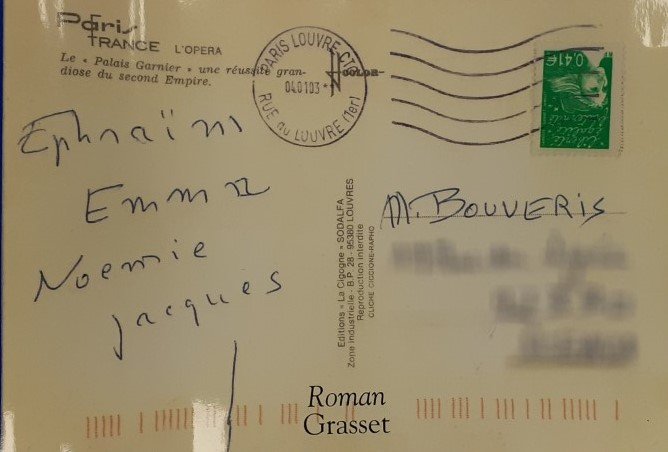 Paris
FRANCE L'OPERA
Le « Palais Garnier » une réussite gran-
diose du second Empire.
PARIS LOUVRE CTC
040103
RUE du LOUVRE (1er)
0,41€
Ephraïm
Emma
Noemie
Jacques
M. BOUVERIS
Editions « La Cigogne » SODALFA
Zone industrielle - B.P. 28 - 95380 LOUVRES
Reproduction interdite
CLICHE CIGOGNE-RAPHO
Roman
Grasset